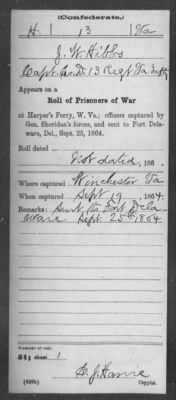 (Confederate.)
H. 13 Va
J. W. Hibbs
Capt Co. D. 13 Regt Va Infty
Appears on a
Roll of Prisoners of War
at Harper's Ferry, W. Va.; officers captured by
Gen. Sheridan's forces, and sent to Fort Dela-
ware, Del., Sept. 25, 1864.
Roll dated
Not dated, 186 .
Where captured Winchester Va
When captured Sept 19, 1864.
Remarks: Sent to Fort Dela
ware Sept. 25th 1864
Number of roll:
51; sheet 1
Copyist.